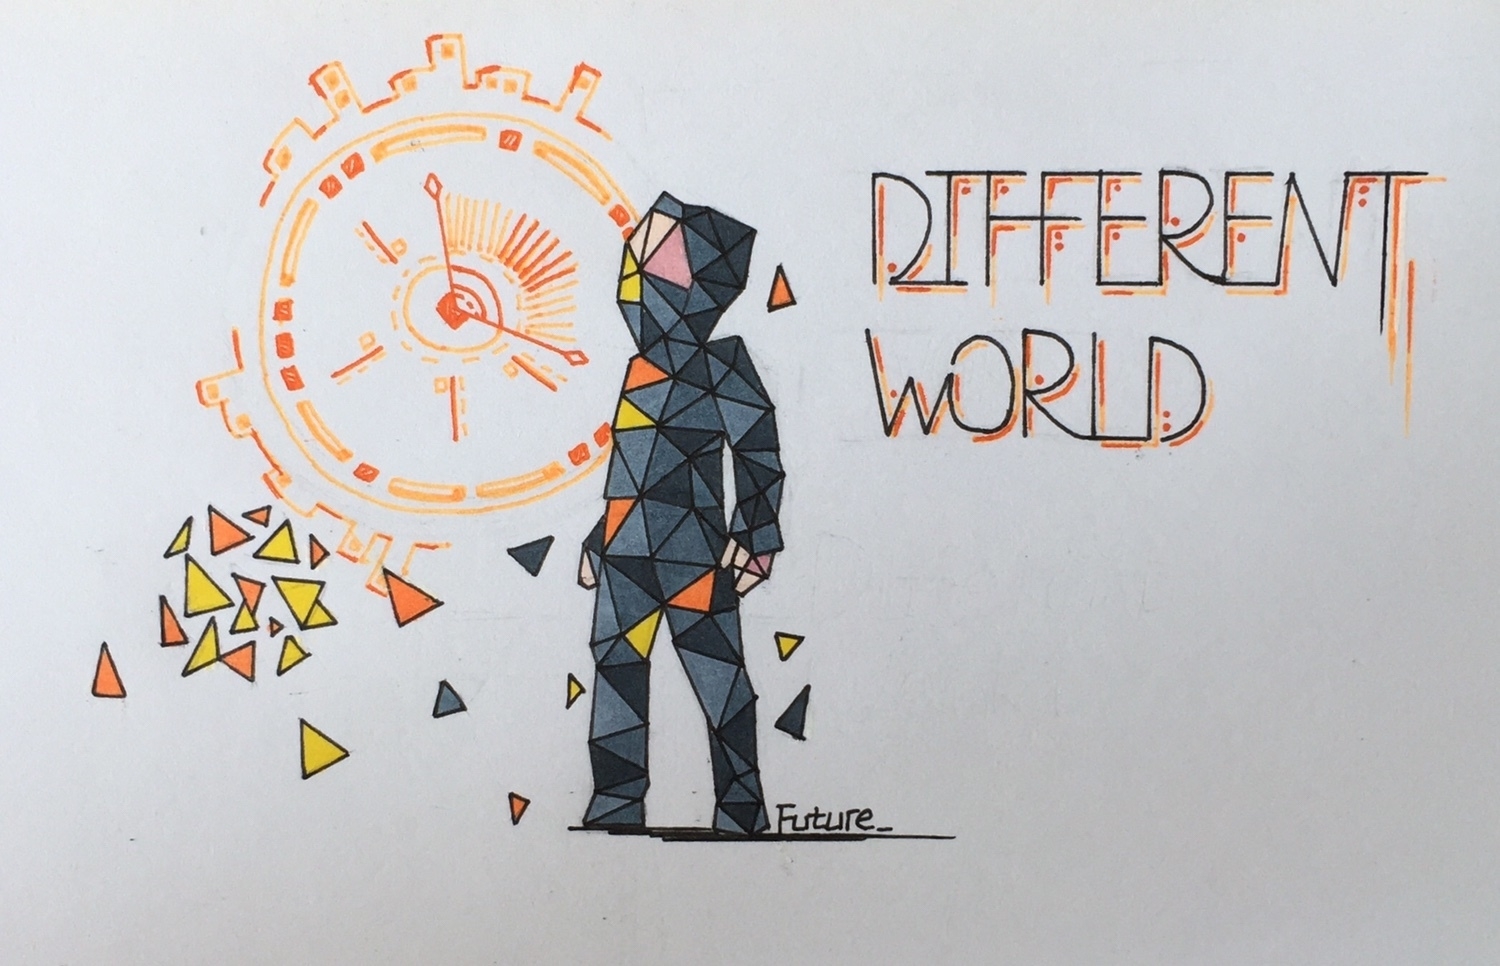 DIFFERENT
WORLD
Future_